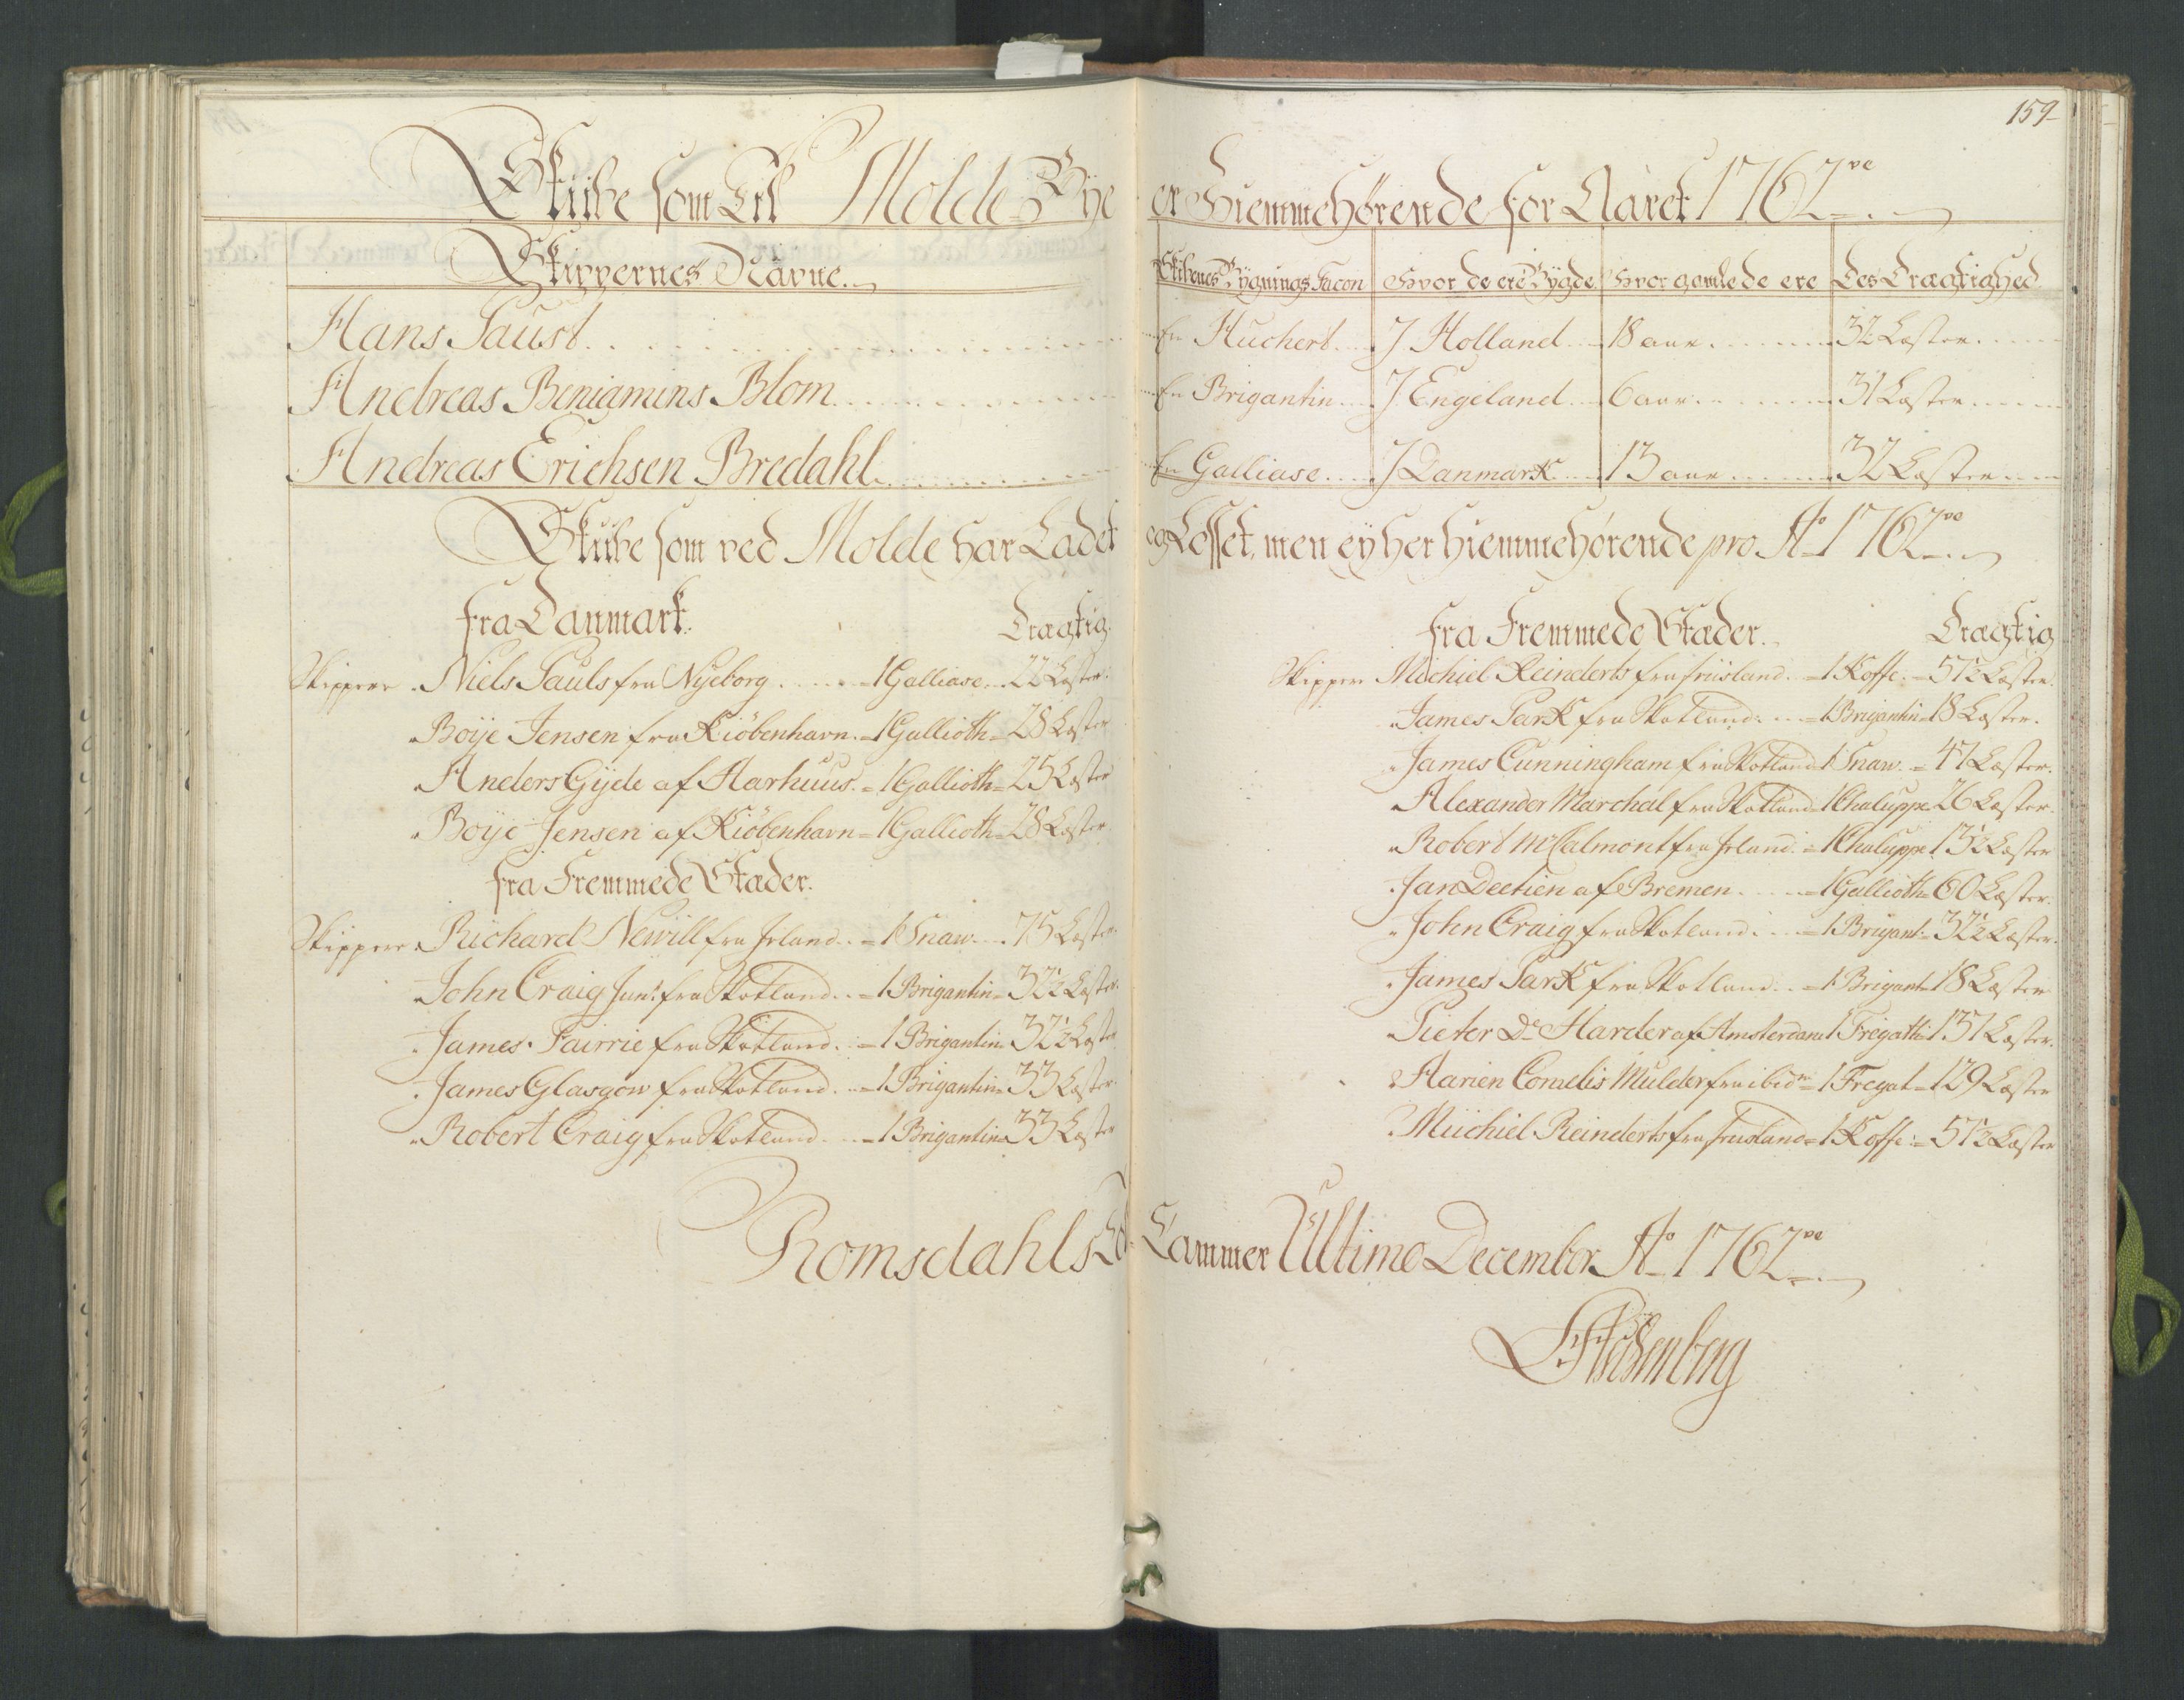 159
Skibe som til Molde Bye er Hiemmehörende for Aaret 1762ve
Skippernes Navne. Skibenes Bygnings Facon Hvor de ere Bygde Hvor gamle de ere Des Drægtighed
Hans Paust En Huchert J Holland 18 aar 32 Læster
Andreas Beniamins Blom En Brigantin J Engeland 6 aar 31 Læster
Andreas Erichsen Bredahl En Galliase J Danmark 13 aar 32 Læster
Skibe som ved Molde har Ladet og Losset, men ey her hiemmehørende pro Ao 1762ve
fra Danmark. Drægtig.
Skippere Niels Pauls fra Nyeborg 1 Galliase 22 Læster
Boije Jensen fra Kiöbenhavn = 1 Gallioth = 28 Læster
Anders Gijde af Aarhuus = 1 Gallioth = 25 Læster
Boije Jensen af Kiöbenhavn = 1 Gallioth = 28 Læster
fra Fremmede Stæder.
Skippere Richard Newill fra Jrland = 1 Snaw 75 Læster
John Craig Junr fra Skotland = 1 Brigantin = 32½ Læster
James Fairrie fra Skotland = 1 Brigantin = 32½ Læster
James Glasgow fra Skotland = 1 Brigantin = 33 Læster
Robert Craig fra Skotland = 1 Brigantin = 33 Læster
fra Fremmede Stæder. Drægtig
Skippere Michiel Reinderts fra friisland = 1 Koffe = 51½ Læster
James Park fra Skotland = 1 Brigantin = 18 Læster.
James Cunningham fra Skotland = 1 Snaw = 47 Læster.
Alexander Marchal fra Skotland = 1 Chaluppe 26 Læster.
Robert McCalmont fra Jrland = 1 Chaluppe 13½ Læster
Jan Deetien af Bremen = 1 Gallioth = 60 Læster.
John Craig fra Skotland = 1 Brigant = 32½ Læster.
James Park fra Skotland = 1 Brigant = 18 Læster
Pieter De Harder af Amsterdam 1 Fregath = 137 Læster.
Harien Cornelis Mulder fra ibidm = 1 Fregat = 129 Læster
Miichiel Reinderts fra friisland = 1 Koffe = 51½ Læster
Romsdahls Told Cammer Ultimo December Ao 1762ve